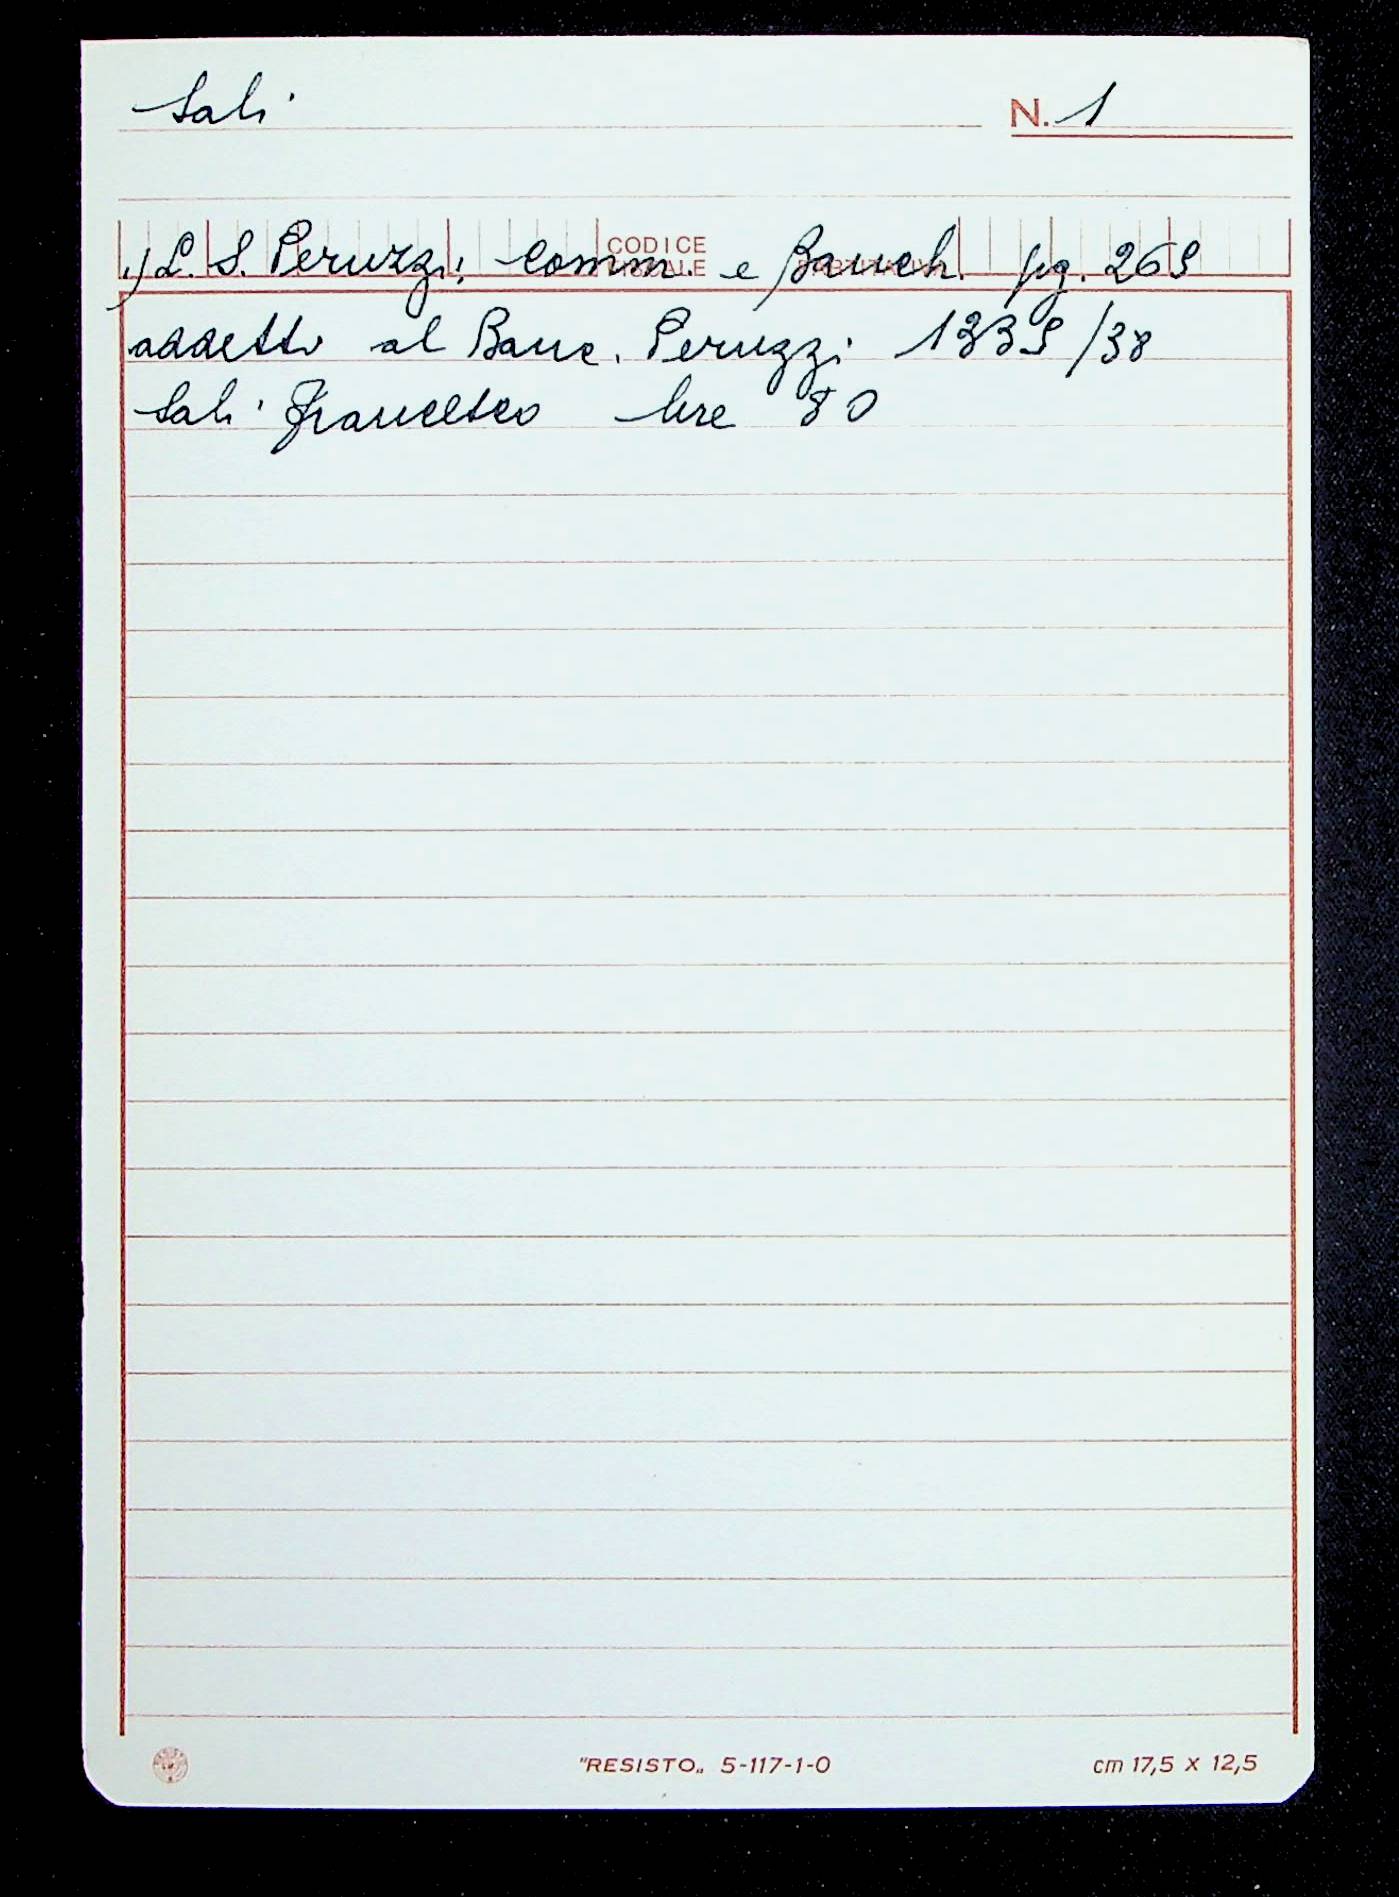 Sali N. 1
1) L. S. Peruzzi; Comm. e Banch. pg. 269
CODICE
addetto al Banc. Peruzzi 1335/38
Sali Francesco lire 80
"RESISTO" 5-117-1-0 cm 17,5 x 12,5